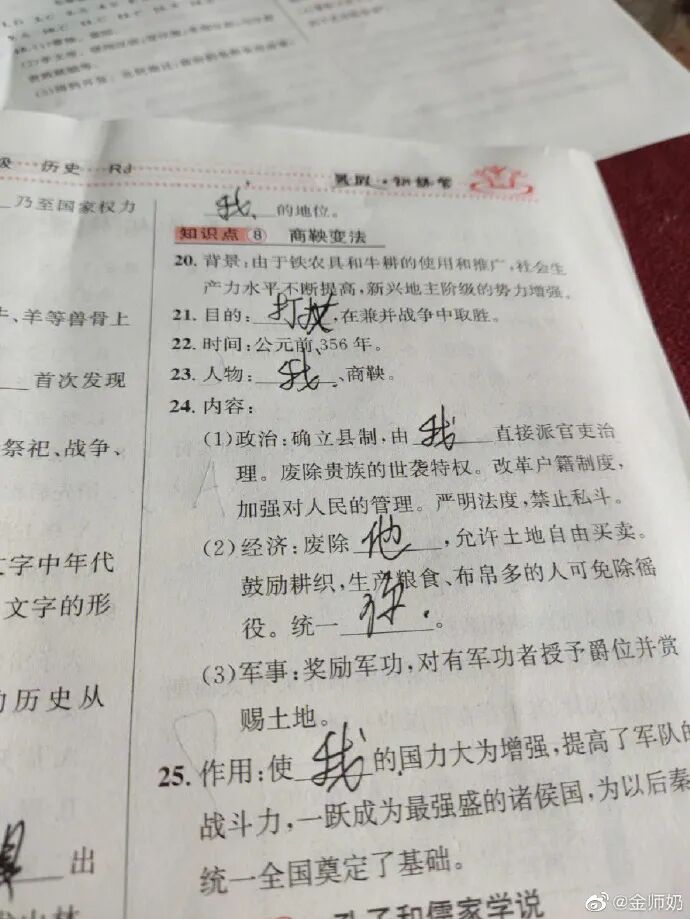 历史 RJ
乃至国家权力
牛、羊等兽骨上
首次发现
祭祀、战争、
文字中年代
文字的形
的历史从
出
我 的地位。
知识点 8 商鞅变法
20. 背景:由于铁农具和牛耕的使用和推广,社会生
产力水平不断提高,新兴地主阶级的势力增强。
21. 目的: 打仗,在兼并战争中取胜。
22. 时间:公元前 356 年。
23. 人物: 我、商鞅。
24. 内容:
(1)政治:确立县制,由 我 直接派官吏治
理。废除贵族的世袭特权。改革户籍制度,
加强对人民的管理。严明法度,禁止私斗。
(2)经济:废除 他 ,允许土地自由买卖。
鼓励耕织,生产粮食、布帛多的人可免除徭
役。统一 你 。
(3)军事:奖励军功,对有军功者授予爵位并赏
赐土地。
25. 作用:使 我 的国力大为增强,提高了军队的
战斗力,一跃成为最强盛的诸侯国,为以后秦
统一全国奠定了基础。
孔子和儒家学说
@金师奶